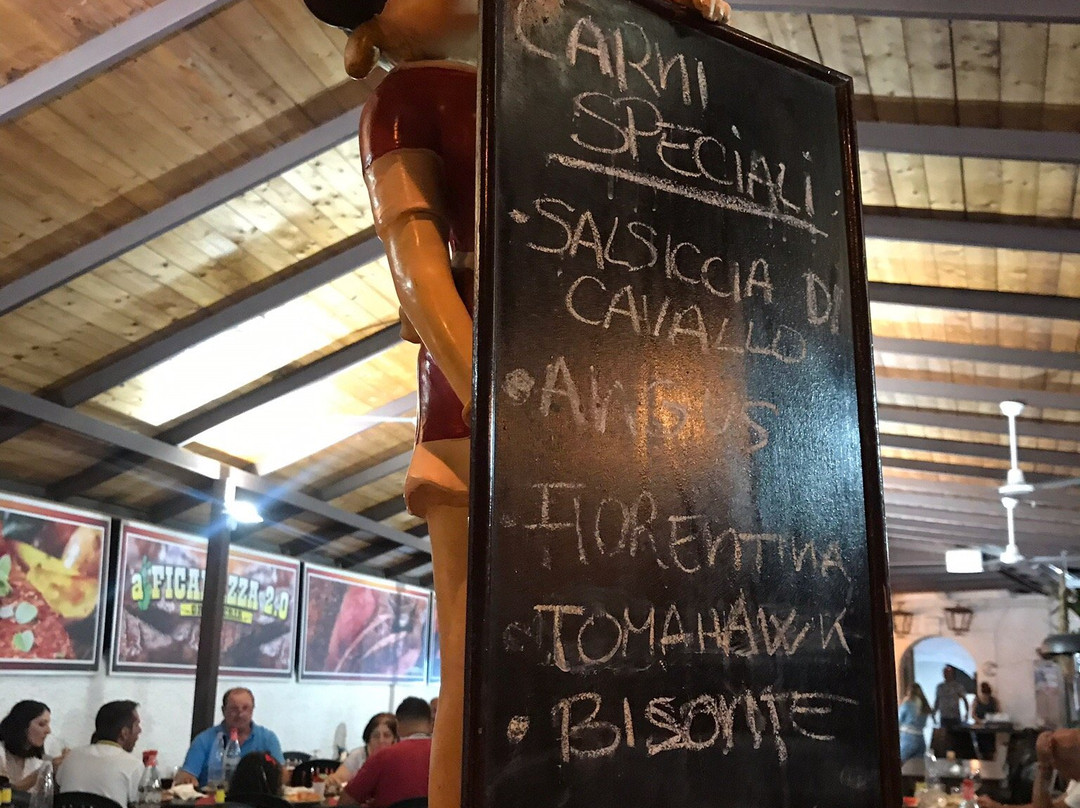 CARNI
SPECIALI:
• SALSICCIA DI
CAVALLO
• ANGUS
• FIORENTINA
• TOMAHAWK
• BISONTE
a FICARAZZA 2.0